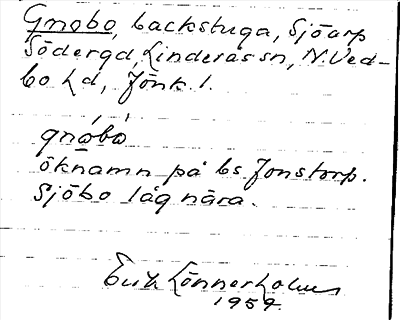 Gnobo, backstuga, Sjöarp
Södergd, Linderås sn, N. Ved-
bo hd, Jönk. l.
gnǻbó
öknamn på bs. Jonstorp.
Sjöbo låg nära.
Erik Lönnerholm
1959.